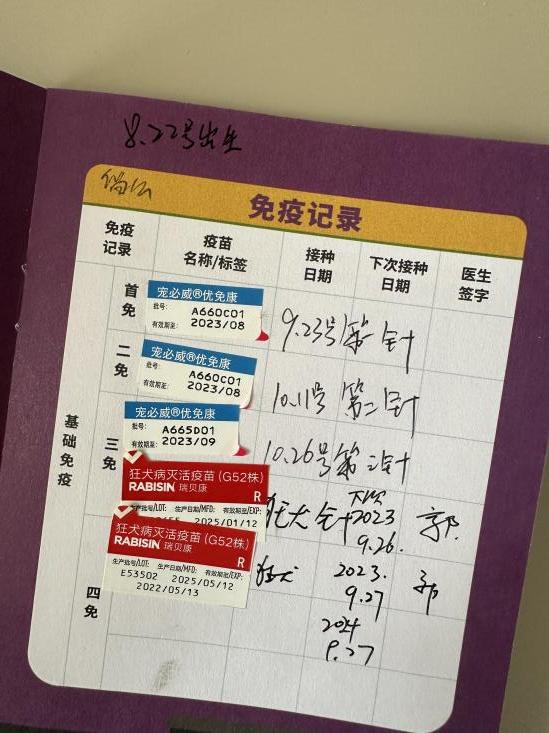 8.22号出生
免疫记录
免疫记录 疫苗名称/标签 接种日期 下次接种日期 医生签字
基础免疫
首免
宠必威®优免康
批号: A660C01
有效期至: 2023/08
9.23号第一针
二免
宠必威®优免康
批号: A660C01
有效期至: 2023/08
10.11号 第二针
三免
宠必威®优免康
批号: A665D01
有效期至: 2023/09
10.26号第三针
狂犬病灭活疫苗(G52株)
RABISIN 瑞贝康
R
生产批号/LOT: 生产日期/MFD: 有效期至/EXP:
2025/01/12
狂犬针
下次
2023
9.26.
郭
狂犬病灭活疫苗(G52株)
RABISIN 瑞贝康
R
生产批号/LOT: 生产日期/MFD: 有效期至/EXP:
E53502 2025/05/12
2022/05/13
狂犬
2023.
9.27
2024
9.27
四免